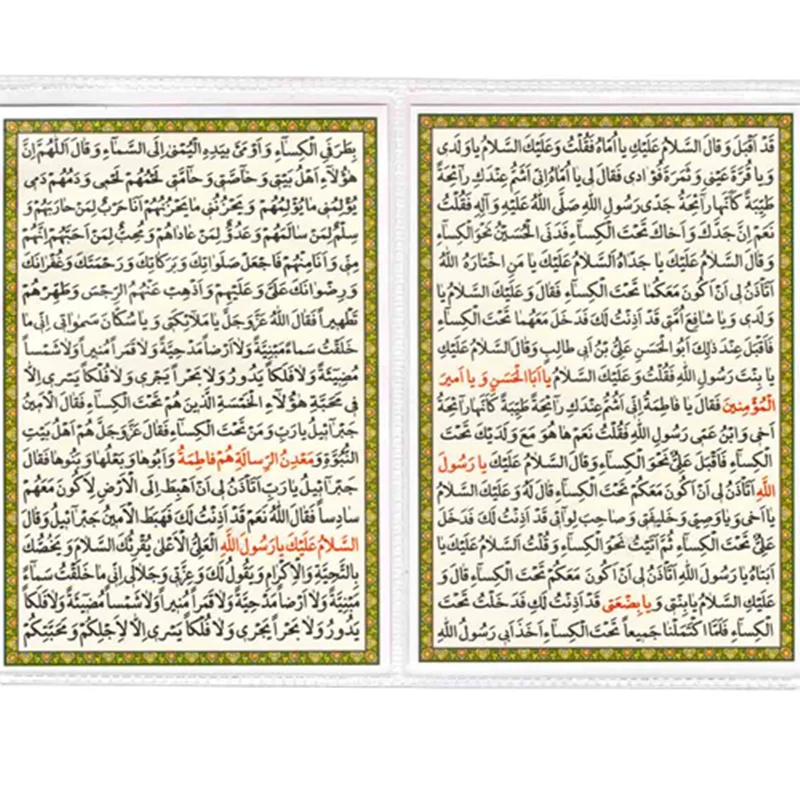 قَدْ اَقْبَلَ وَقالَ السَّلامُ عَلَيْكِ يا اُمّاهُ فَقُلْتُ وَعَلَيْكَ السَّلامُ يا وَلَدى
وَيا قُرَّةَ عَيْنى وَثَمَرَةَ فُؤادى فَقالَ لى يا اُمّاهُ اِنّى اَشَمُّ عِنْدَكِ رآئِحَةً
طَيِّبَةً كَاَنَّها رآئِحَةُ جَدّى رَسُولِ اللّٰهِ صَلَّى اللّٰهُ عَلَيْهِ وَآلِهِ فَقُلْتُ
نَعَمْ اِنَّ جَدَّكَ وَاَخاكَ تَحْتَ الْكِسآءِ فَدَنَى الْحُسَيْنُ نَحْوَ الْكِسآءِ
وَقالَ السَّلامُ عَلَيْكَ يا جَدّاهُ اَلسَّلامُ عَلَيْكَ يا مَنِ اخْتارَهُ اللّٰهُ
اَتَاْذَنُ لى اَنْ اَكُونَ مَعَكُما تَحْتَ الْكِسآءِ فَقالَ وَعَلَيْكَ السَّلامُ يا
وَلَدى وَيا شافِعَ اُمَّتى قَدْ اَذِنْتُ لَكَ فَدَخَلَ مَعَهُما تَحْتَ الْكِسآءِ
فَاَقْبَلَ عِنْدَ ذٰلِكَ اَبُو الْحَسَنِ عَلِىُّ بْنُ اَبى طالِبٍ وَقالَ السَّلامُ عَلَيْكِ
يا بِنْتَ رَسُولِ اللّٰهِ فَقُلْتُ وَعَلَيْكَ السَّلامُ يا اَبَا الْحَسَنِ وَيا اَميرَ
الْمُؤْمِنينَ فَقالَ يا فاطِمَةُ اِنّى اَشَمُّ عِنْدَكِ رآئِحَةً طَيِّبَةً كَاَنَّها رآئِحَةُ
اَخى وَابْنِ عَمّى رَسُولِ اللّٰهِ فَقُلْتُ نَعَمْ ها هُوَ مَعَ وَلَدَيْكَ تَحْتَ
الْكِسآءِ فَاَقْبَلَ عَلِىٌّ نَحْوَ الْكِسآءِ وَقالَ السَّلامُ عَلَيْكَ يا رَسُولَ
اللّٰهِ اَتَاْذَنُ لى اَنْ اَكُونَ مَعَكُمْ تَحْتَ الْكِسآءِ قالَ لَهُ وَعَلَيْكَ السَّلامُ
يا اَخى وَيا وَصِيّى وَخَليفَتى وَصاحِبَ لِوآئى قَدْ اَذِنْتُ لَكَ فَدَخَلَ
عَلِىٌّ تَحْتَ الْكِسآءِ ثُمَّ اَتَيْتُ نَحْوَ الْكِسآءِ وَقُلْتُ اَلسَّلامُ عَلَيْكَ يا
اَبَتاهُ يا رَسُولَ اللّٰهِ اَتَاْذَنُ لى اَنْ اَكُونَ مَعَكُمْ تَحْتَ الْكِسآءِ قالَ وَ
عَلَيْكِ السَّلامُ يا بِنْتى وَيا بِضْعَتى قَدْ اَذِنْتُ لَكِ فَدَخَلْتُ تَحْتَ
الْكِسآءِ فَلَمَّا اكْتَمَلْنا جَميعاً تَحْتَ الْكِسآءِ اَخَذَ اَبى رَسُولُ اللّٰهِ
بِطَرَفَىِ الْكِسآءِ وَاَوْمَئَ بِيَدِهِ الْيُمْنٰى اِلَى السَّمآءِ وَقالَ اَللّٰهُمَّ اِنَّ
هٰؤُلآءِ اَهْلُ بَيْتى وَخآصَّتى وَحآمَّتى لَحْمُهُمْ لَحْمى وَدَمُهُمْ دَمى
يُؤْلِمُنى ما يُؤْلِمُهُمْ وَيَحْزُنُنى ما يَحْزُنُهُمْ اَنَا حَرْبٌ لِمَنْ حارَبَهُمْ وَ
سِلْمٌ لِمَنْ سالَمَهُمْ وَعَدُوٌّ لِمَنْ عاداهُمْ وَمُحِبٌّ لِمَنْ اَحَبَّهُمْ اِنَّهُمْ
مِنّى وَاَنَا مِنْهُمْ فَاجْعَلْ صَلَواتِكَ وَبَرَكاتِكَ وَرَحْمَتَكَ وَغُفْرانَكَ
وَرِضْوانَكَ عَلَىَّ وَعَلَيْهِمْ وَاَذْهِبْ عَنْهُمُ الرِّجْسَ وَطَهِّرْهُمْ
تَطْهيراً فَقالَ اللّٰهُ عَزَّوَجَلَّ يا مَلآئِكَتى وَيا سُكّانَ سَمٰواتى اِنّى ما
خَلَقْتُ سَمآءً مَبْنِيَّةً وَلا اَرْضاً مَدْحِيَّةً وَلا قَمَراً مُنيراً وَلا شَمْساً
مُضيئَةً وَلا فَلَكاً يَدُورُ وَلا بَحْراً يَجْرى وَلا فُلْكاً يَسْرى اِلاّ
فى مَحَبَّةِ هٰؤُلآءِ الْخَمْسَةِ الَّذينَ هُمْ تَحْتَ الْكِسآءِ فَقالَ الْاَمينُ
جَبْرآئيلُ يا رَبِّ وَمَنْ تَحْتَ الْكِسآءِ فَقالَ عَزَّوَجَلَّ هُمْ اَهْلُ بَيْتِ
النُّبُوَّةِ وَمَعْدِنُ الرِّسالَةِ هُمْ فاطِمَةُ وَاَبُوها وَبَعْلُها وَبَنُوها فَقالَ
جَبْرآئيلُ يا رَبِّ اَتَاْذَنُ لى اَنْ اَهْبِطَ اِلَى الْاَرْضِ لِاَكُونَ مَعَهُمْ
سادِساً فَقالَ اللّٰهُ نَعَمْ قَدْ اَذِنْتُ لَكَ فَهَبَطَ الْاَمينُ جَبْرآئيلُ وَقالَ
السَّلامُ عَلَيْكَ يا رَسُولَ اللّٰهِ الْعَلِىُّ الْاَعْلٰى يُقْرِئُكَ السَّلامَ وَيَخُصُّكَ
بِالتَّحِيَّةِ وَالْاِكْرامِ وَيَقُولُ لَكَ وَعِزَّتى وَجَلالى اِنّى ما خَلَقْتُ سَمآءً
مَبْنِيَّةً وَلا اَرْضاً مَدْحِيَّةً وَلا قَمَراً مُنيراً وَلا شَمْساً مُضيئَةً وَلا فَلَكاً
يَدُورُ وَلا بَحْراً يَجْرى وَلا فُلْكاً يَسْرى اِلاّ لِاَجْلِكُمْ وَمَحَبَّتِكُمْ